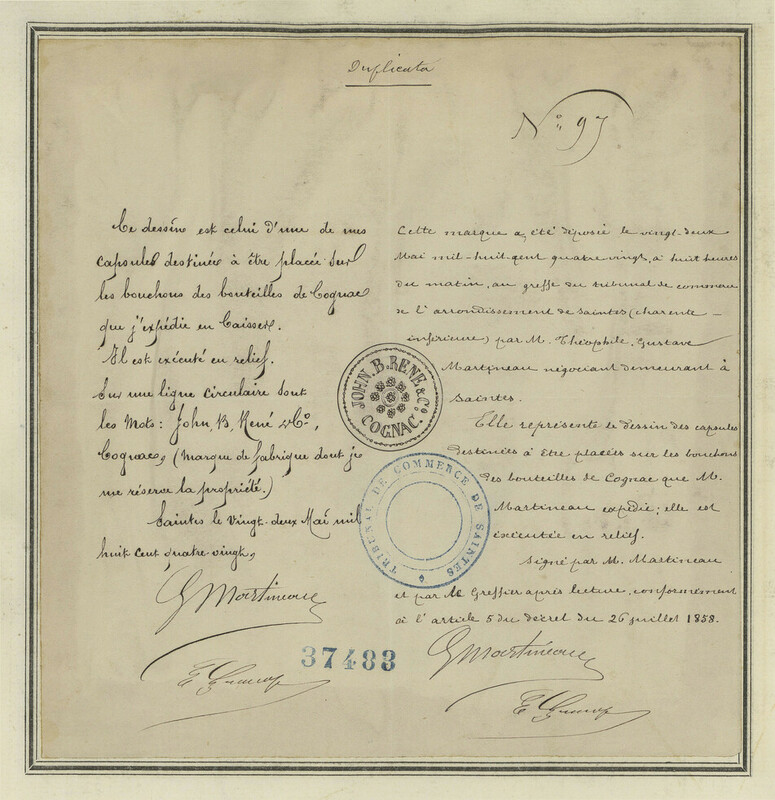 Duplicata
N° 97
Ce dessin est celui d'une de mes
capsules destinée à être placée sur
les bouchons des bouteilles de Cognac
que j'expédie en Caisses.
Il est exécuté en relief.
Sur une ligne circulaire sont
les Mots: John, B, René & Co,
Cognac, (Marque de fabrique dont je
me réserve la propriété.)
Saintes le Vingt-deux Mai mil
huit cent quatre-vingt,
G Martineau
Cette marque a été déposée le vingt-deux
Mai mil-huit-cent quatre vingt, à huit heures
du matin, au greffe du tribunal de commerce
de l'arrondissement de Saintes (charente-
inférieure) par M. Théophile, Gustave
Martineau négociant demeurant à
Saintes.
Elle représente le dessin des capsules
destinées à être placées sur les bouchons
des bouteilles de Cognac que M.
Martineau expédie; elle est
exécutée en relief.
Signé par M. Martineau
et par Me Greffier après lecture, conformément
à l'article 5 du décret du 26 juillet 1858.
G Martineau
JOHN.B.RENE & Co.
COGNAC.
TRIBUNAL DE COMMERCE DE SAINTES
37483